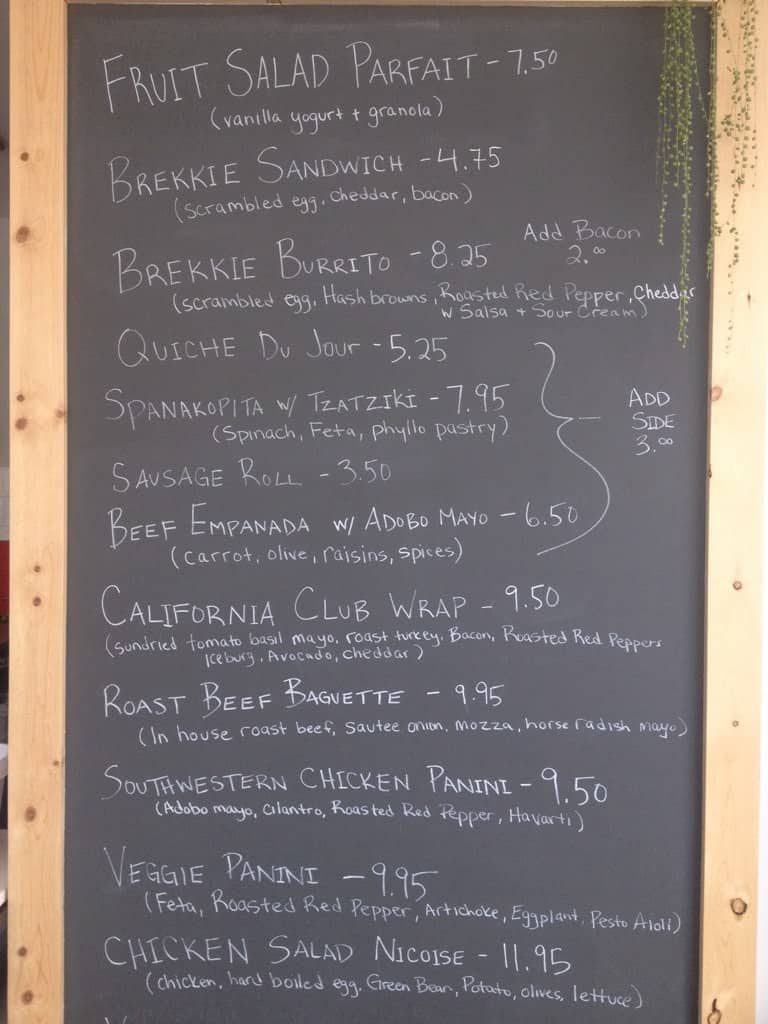 FRUIT SALAD PARFAIT - 7.50
(vanilla yogurt + granola)
BREKKIE SANDWICH - 4.75
(scrambled egg, cheddar, bacon)
Add Bacon
2.00
BREKKIE BURRITO - 8.25
(scrambled egg, Hashbrowns, Roasted Red Pepper, Cheddar
w Salsa + Sour Cream)
QUICHE DU JOUR - 5.25
SPANAKOPITA W/ TZATZIKI - 7.95
(Spinach, Feta, phyllo pastry)
ADD
SIDE
3.00
SAUSAGE ROLL - 3.50
BEEF EMPANADA W/ ADOBO MAYO - 6.50
(carrot, olive, raisins, spices)
CALIFORNIA CLUB WRAP - 9.50
(sundried tomato basil mayo, roast turkey, Bacon, Roasted Red Peppers
Iceburg, Avocado, cheddar)
ROAST BEEF BAGUETTE - 9.95
(In house roast beef, sautee onion, mozza, horse radish mayo)
SOUTHWESTERN CHICKEN PANINI - 9.50
(Adobo mayo, cilantro, Roasted Red Pepper, Havarti)
VEGGIE PANINI - 9.95
(Feta, Roasted Red Pepper, Artichoke, Eggplant, Pesto Aioli)
CHICKEN SALAD NICOISE - 11.95
(chicken, hard boiled egg, Green Bean, Potato, olives, lettuce)